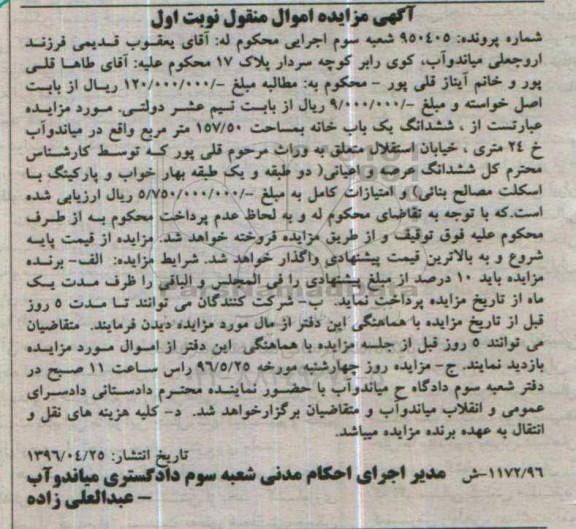 آگهی مزایده اموال منقول نوبت اول
شماره پرونده: ۹۵۰۴۰۵ شعبه سوم اجرایی محکوم له: آقای یعقوب قدیمی فرزند
اروجعلی میاندوآب، کوی رابر کوچه سردار پلاک ۱۷ محکوم علیه: آقای طاها قلی
پور و خانم آیناز قلی پور - محکوم به: مطالبه مبلغ -/۱۲۰/۰۰۰/۰۰۰ ریال از بابت
اصل خواسته و مبلغ -/۹/۰۰۰/۰۰۰ ریال از بابت نیم عشر دولتی. مورد مزایده
عبارتست از ، ششدانگ یک باب خانه بمساحت ۱۵۷/۵۰ متر مربع واقع در میاندوآب
خ ۲۴ متری ، خیابان استقلال متعلق به وراث مرحوم قلی پور که توسط کارشناس
محترم کل ششدانگ عرصه و اعیانی( دو طبقه و یک طبقه بهار خواب و پارکینگ با
اسکلت مصالح بنائی) و امتیازات کامل به مبلغ -/۵/۷۵۰/۰۰۰/۰۰۰ ریال ارزیابی شده
است.که با توجه به تقاضای محکوم له و به لحاظ عدم پرداخت محکوم به از طرف
محکوم علیه فوق توقیف و از طریق مزایده فروخته خواهد شد. مزایده از قیمت پایه
شروع و به بالاترین قیمت پیشنهادی واگذار خواهد شد. شرایط مزایده: الف- برنده
مزایده باید ۱۰ درصد از مبلغ پیشنهادی را فی المجلس و الباقی را ظرف مدت یک
ماه از تاریخ مزایده پرداخت نماید. ب- شرکت کنندگان می توانند تا مدت ۵ روز
قبل از تاریخ مزایده با هماهنگی این دفتر از مال مورد مزایده دیدن فرمایند. متقاضیان
می توانند ۵ روز قبل از جلسه مزایده با هماهنگی این دفتر از اموال مورد مزایده
بازدید نمایند. ج- مزایده روز چهارشنبه مورخه ۹۶/۵/۲۵ راس ساعت ۱۱ صبح در
دفتر شعبه سوم دادگاه ح میاندوآب با حضور نماینده محترم دادستانی دادسرای
عمومی و انقلاب میاندوآب و متقاضیان برگزارخواهد شد. د- کلیه هزینه های نقل و
انتقال به عهده برنده مزایده میباشد.
تاریخ انتشار: ۱۳۹۶/۰۴/۲۵
۱۱۷۲/۹۶-ش مدیر اجرای احکام مدنی شعبه سوم دادگستری میاندوآب
– عبدالعلی زاده